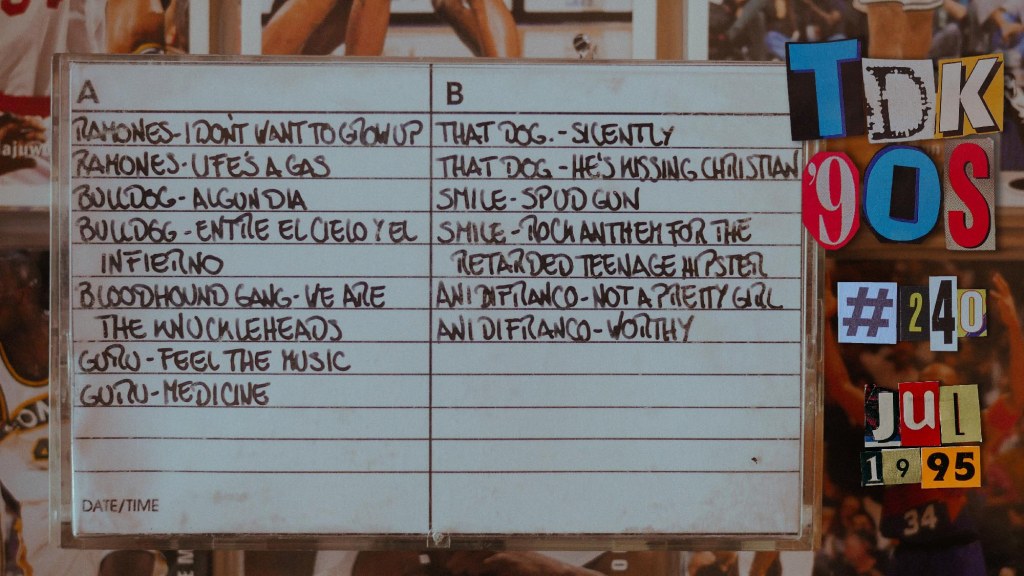 A
RAMONES-I DON'T WANT TO GROW UP
RAMONES-LIFE'S A GAS
BULLDOG-ALGUN DIA
BULLDOG-ENTRE EL CIELO Y EL
INFIERNO
BLOODHOUND GANG-WE ARE
THE KNUCKLEHEADS
GURU-FEEL THE MUSIC
GURU-MEDICINE
DATE/TIME
B
THAT DOG.-SILENTLY
THAT DOG-HE'S KISSING CHRISTIAN
SMILE-SPUD GUN
SMILE-ROCK ANTHEM FOR THE
RETARDED TEENAGE HIPSTER
ANI DIFRANCO-NOT A PRETTY GIRL
ANI DIFRANCO-WORTHY
TDK
'90S
#240
JUL
1995
34